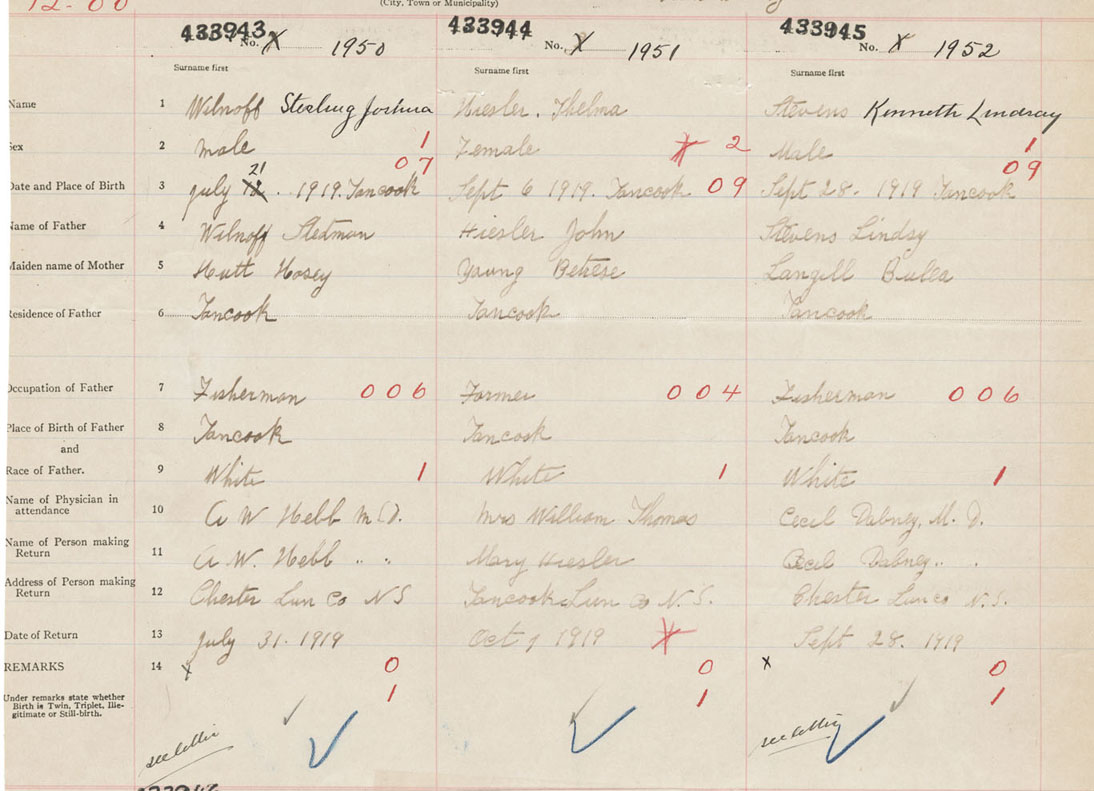 12.00
(City, Town or Municipality)
433943 433944 433945
No. X 1950 No. X 1951 No. X 1952
Surname first Surname first Surname first
Name 1 Wilnoff Sterling Joshua Hiesler. Thelma Stevens Kenneth Lindsay
Sex 2 male 1 Female 2 Male 1
07 09
21
Date and Place of Birth 3 july 12. 1919. Tancook Sept 6 1919. Tancook 09 Sept 28. 1919 Tancook
Name of Father 4 Wilnoff Stedman Hiesler John Stevens Lindsy
Maiden name of Mother 5 Hutt Hosey Young Betrese Langill Bulea
Residence of Father 6 Tancook Tancook Tancook
Occupation of Father 7 Fisherman 006 Farmer 004 Fisherman 006
Place of Birth of Father 8 Tancook Tancook Tancook
and
Race of Father. 9 White 1 White 1 White 1
Name of Physician in
attendance 10 A W Hebb M.D. Mrs William Thomas Cecil Dabney. M. D.
Name of Person making
Return 11 A W. Hebb " " Mary Hiesler Cecil Dabney.. .
Address of Person making
Return 12 Chester Lun Co N S Tancook Lun Co N. S. Chester Lun Co N. S.
Date of Return 13 july 31. 1919 Oct 1919 Sept 28. 1919
REMARKS 14 x 0 0 x 0
Under remarks state whether
Birth is Twin, Triplet, Ille-
gitimate or Still-birth. 1 1 1